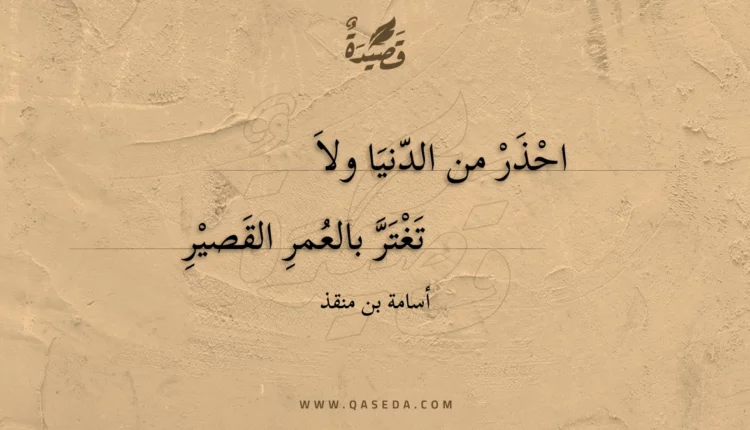 قَصِيْدَةٌ
احْذَرْ من الدّنيَا ولاَ
تَغْتَرَّ بالعُمرِ القَصيْرِ
أسامة بن منقذ
WWW.QASEDA.COM